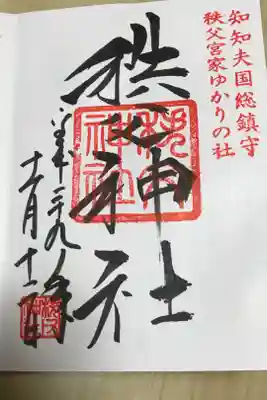 知知夫国総鎮守
秩父宮家ゆかりの社
秩父神社
秩父神社
平成二十九年
十一月十二日